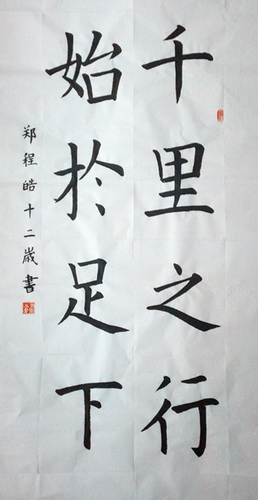 千里之行
始於足下
郑程皓十二歲書